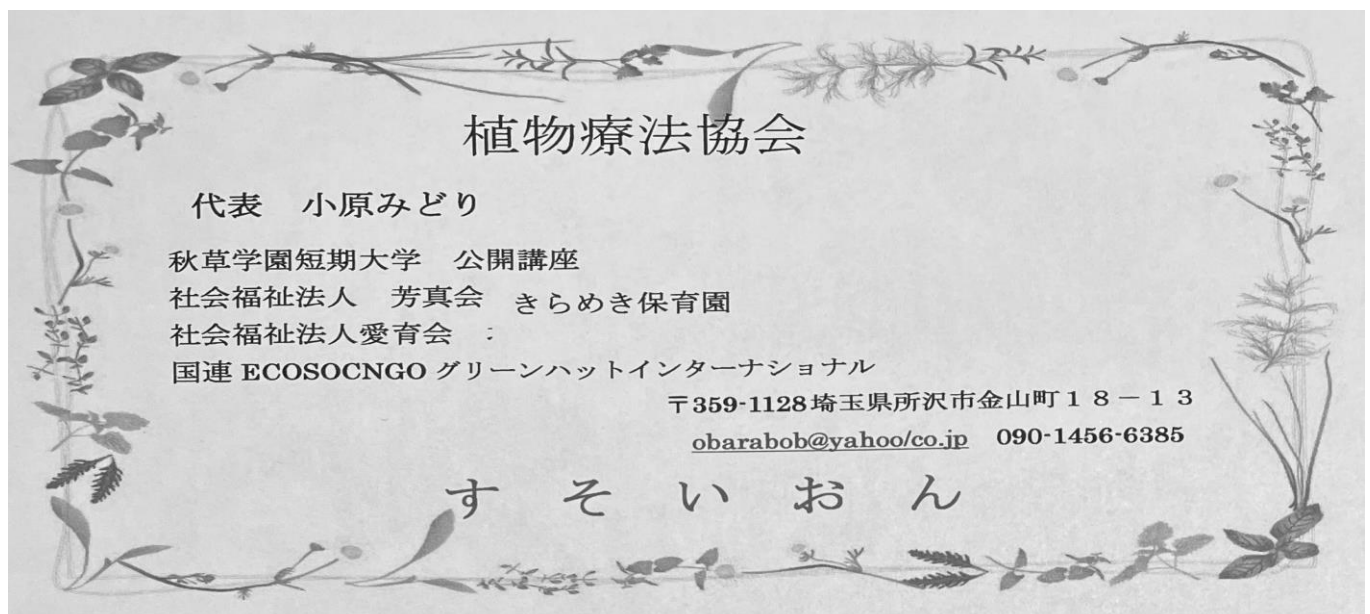 植物療法協会
代表　小原みどり
秋草学園短期大学　公開講座
社会福祉法人　芳真会　きらめき保育園
社会福祉法人愛育会
国連 ECOSOCNGO グリーンハットインターナショナル
〒359-1128 埼玉県所沢市金山町１８－１３
obarabob@yahoo/co.jp　090-1456-6385
すそいおん